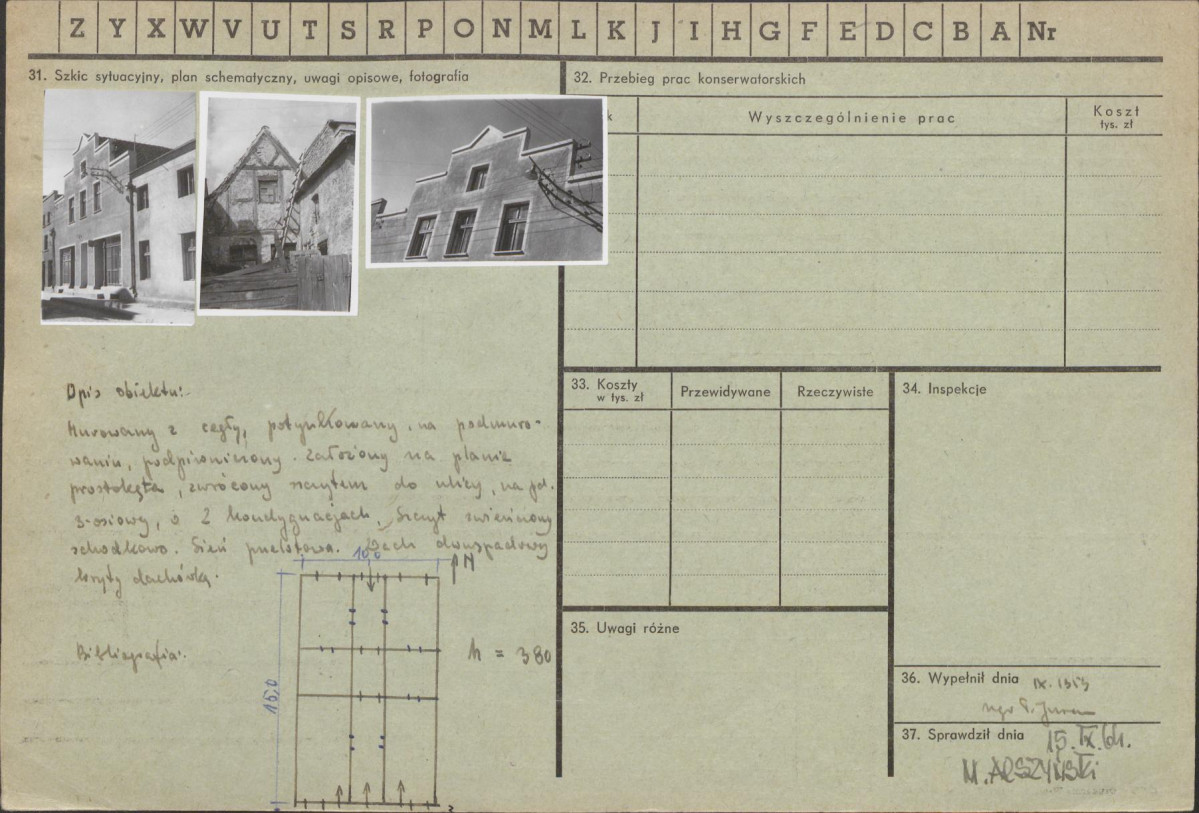 Z Y X W V U T S R P O N M L K J I H G F E D C B A Nr
31. Szkic sytuacyjny, plan schematyczny, uwagi opisowe, fotografia
32. Przebieg prac konserwatorskich
k
Wyszczególnienie prac
Koszt
tys. zł
Opis obiektu:
Murowany z cegły, potynkowany, na podmuro-
waniu, podpiwniczony. Założony na planie
prostokąta, zwrócony szczytem do ulicy, na pd.
3-osiowy, o 2 kondygnacjach. Szczyt zwieńczony
schodkowo. Sień przelotowa. Dach dwuspadowy
kryty dachówką.
10,0
N
15,0
Bibliografia:
h = 380
33. Koszty
w tys. zł
Przewidywane
Rzeczywiste
34. Inspekcje
35. Uwagi różne
36. Wypełnił dnia IX. 1959
mgr
37. Sprawdził dnia 15. IX. 64.
M. ARSZYŃSKI